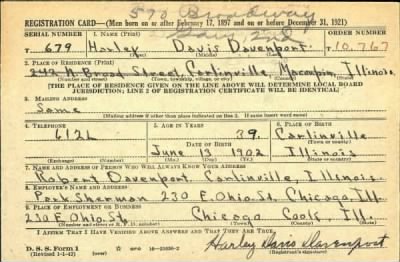 570 Broadway
Gary Ind
REGISTRATION CARD—(Men born on or after February 17, 1897 and on or before December 31, 1921)
SERIAL NUMBER 1. NAME (Print) ORDER NUMBER
T 679 Harley Davis Davenport T10,767
(First) (Middle) (Last)
2. PLACE OF RESIDENCE (Print)
242 N. Broad Street, Carlinville, Macoupin, Illinois
(Number and street) (Town, township, village, or city) (County) (State)
[THE PLACE OF RESIDENCE GIVEN ON THE LINE ABOVE WILL DETERMINE LOCAL BOARD
JURISDICTION; LINE 2 OF REGISTRATION CERTIFICATE WILL BE IDENTICAL]
3. MAILING ADDRESS
Same
(Mailing address if other than place indicated on line 2. If same insert word same)
4. TELEPHONE 5. AGE IN YEARS 6. PLACE OF BIRTH
612L 39 Carlinville
DATE OF BIRTH (Town or county)
June 13 1902 Illinois
(Exchange) (Number) (Mo.) (Day) (Yr.) (State or country)
7. NAME AND ADDRESS OF PERSON WHO WILL ALWAYS KNOW YOUR ADDRESS
Robert Davenport, Carlinville, Illinois.
8. EMPLOYER'S NAME AND ADDRESS
Park Sherman 230 E. Ohio St. Chicago, Ill.
9. PLACE OF EMPLOYMENT OR BUSINESS
230 E. Ohio St. Chicago Cook, Ill.
(Number and street or R. F. D. number) (Town) (County) (State)
I AFFIRM THAT I HAVE VERIFIED ABOVE ANSWERS AND THAT THEY ARE TRUE.
D. S. S. Form 1
(Revised 1-1-42) (over)
Harley Davis Davenport